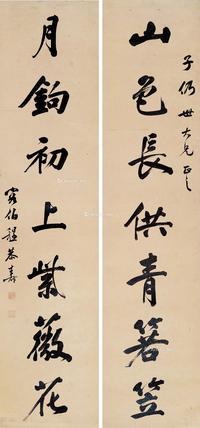 子仍世大兄正之
山色長供青箬笠
月鉤初上紫薇花
容伯程恭壽